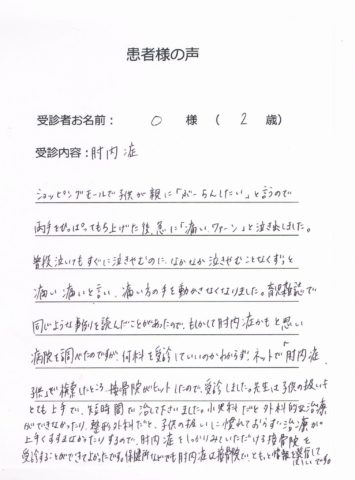 患者様の声
受診者お名前： O 様 （ 2 歳）
受診内容：肘内症
ショッピングモールで子供が親に「ぶーらんしたい」と言うので
両手をひっぱってもち上げた後、急に「痛い、ワァーン」と泣き出しました。
普段泣いてもすぐに泣きやむのに、なかなか泣きやむことなくずっと
痛い痛いと言い、痛い方の手を動かさなくなりました。育児雑誌で
同じような事例を読んだことがあったので、もしかして肘内症かもと思い
病院を調べたのですが、何科を受診していいのかわからず、ネットで「肘内症、
子供」で検索したところ、接骨院がヒットしたので、受診しました。先生は子供の扱いも
とても上手で、短時間で治して下さいました。小児科だと外科的な治療
ができなかったり、整形外科だと、子供の扱いに慣れておらず治療が
上手くすすまなかったりするので、肘内症をしっかりみていただける接骨院を
受診することができてよかったです。保健所などでも肘内症は接骨院で、ともっと情報を発信して
ほしいです。